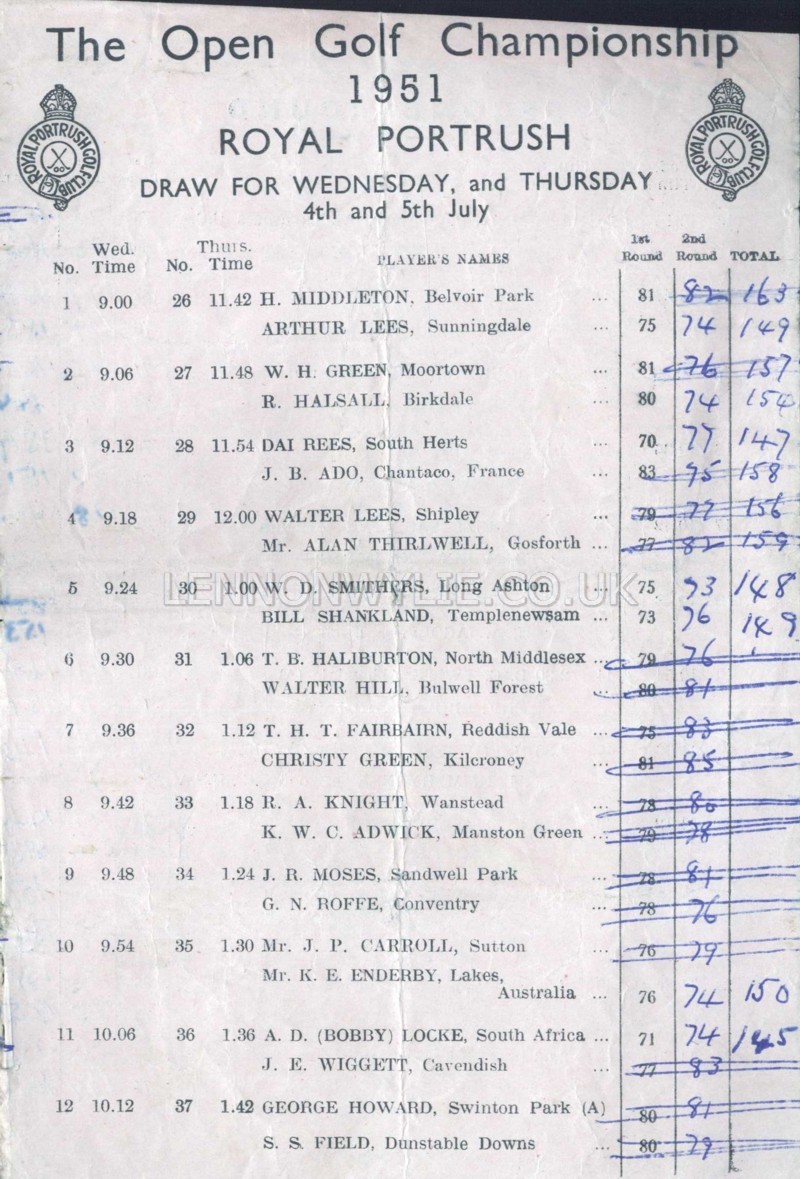 The Open Golf Championship
1951
ROYAL PORTRUSH
DRAW FOR WEDNESDAY, and THURSDAY
4th and 5th July
ROYAL PORTRUSH GOLF CLUB
ROYAL PORTRUSH GOLF CLUB
No. Wed. Time No. Thurs. Time PLAYER'S NAMES 1st Round 2nd Round TOTAL
1 9.00 26 11.42 H. MIDDLETON, Belvoir Park ... 81 82 163
ARTHUR LEES, Sunningdale ... 75 74 149
2 9.06 27 11.48 W. H. GREEN, Moortown ... 81 76 157
R. HALSALL, Birkdale ... 80 74 154
3 9.12 28 11.54 DAI REES, South Herts ... 70 77 147
J. B. ADO, Chantaco, France ... 83 75 158
4 9.18 29 12.00 WALTER LEES, Shipley ... 79 77 156
Mr. ALAN THIRLWELL, Gosforth ... 77 82 159
5 9.24 30 1.00 W. D. SMITHERS, Long Ashton ... 75 73 148
LENNONWYLIE.CO.UK
BILL SHANKLAND, Templenewsam ... 73 76 149
6 9.30 31 1.06 T. B. HALIBURTON, North Middlesex ... 79 76
WALTER HILL, Bulwell Forest ... 80 81
7 9.36 32 1.12 T. H. T. FAIRBAIRN, Reddish Vale ... 75 83
CHRISTY GREEN, Kilcroney ... 81 85
8 9.42 33 1.18 R. A. KNIGHT, Wanstead ... 78 80
K. W. C. ADWICK, Manston Green ... 79 78
9 9.48 34 1.24 J. R. MOSES, Sandwell Park ... 78 81
G. N. ROFFE, Conventry ... 78 76
10 9.54 35 1.30 Mr. J. P. CARROLL, Sutton ... 76 79
Mr. K. E. ENDERBY, Lakes,
Australia ... 76 74 150
11 10.06 36 1.36 A. D. (BOBBY) LOCKE, South Africa ... 71 74 145
J. E. WIGGETT, Cavendish ... 77 83
12 10.12 37 1.42 GEORGE HOWARD, Swinton Park (A) 80 81
S. S. FIELD, Dunstable Downs ... 80 79